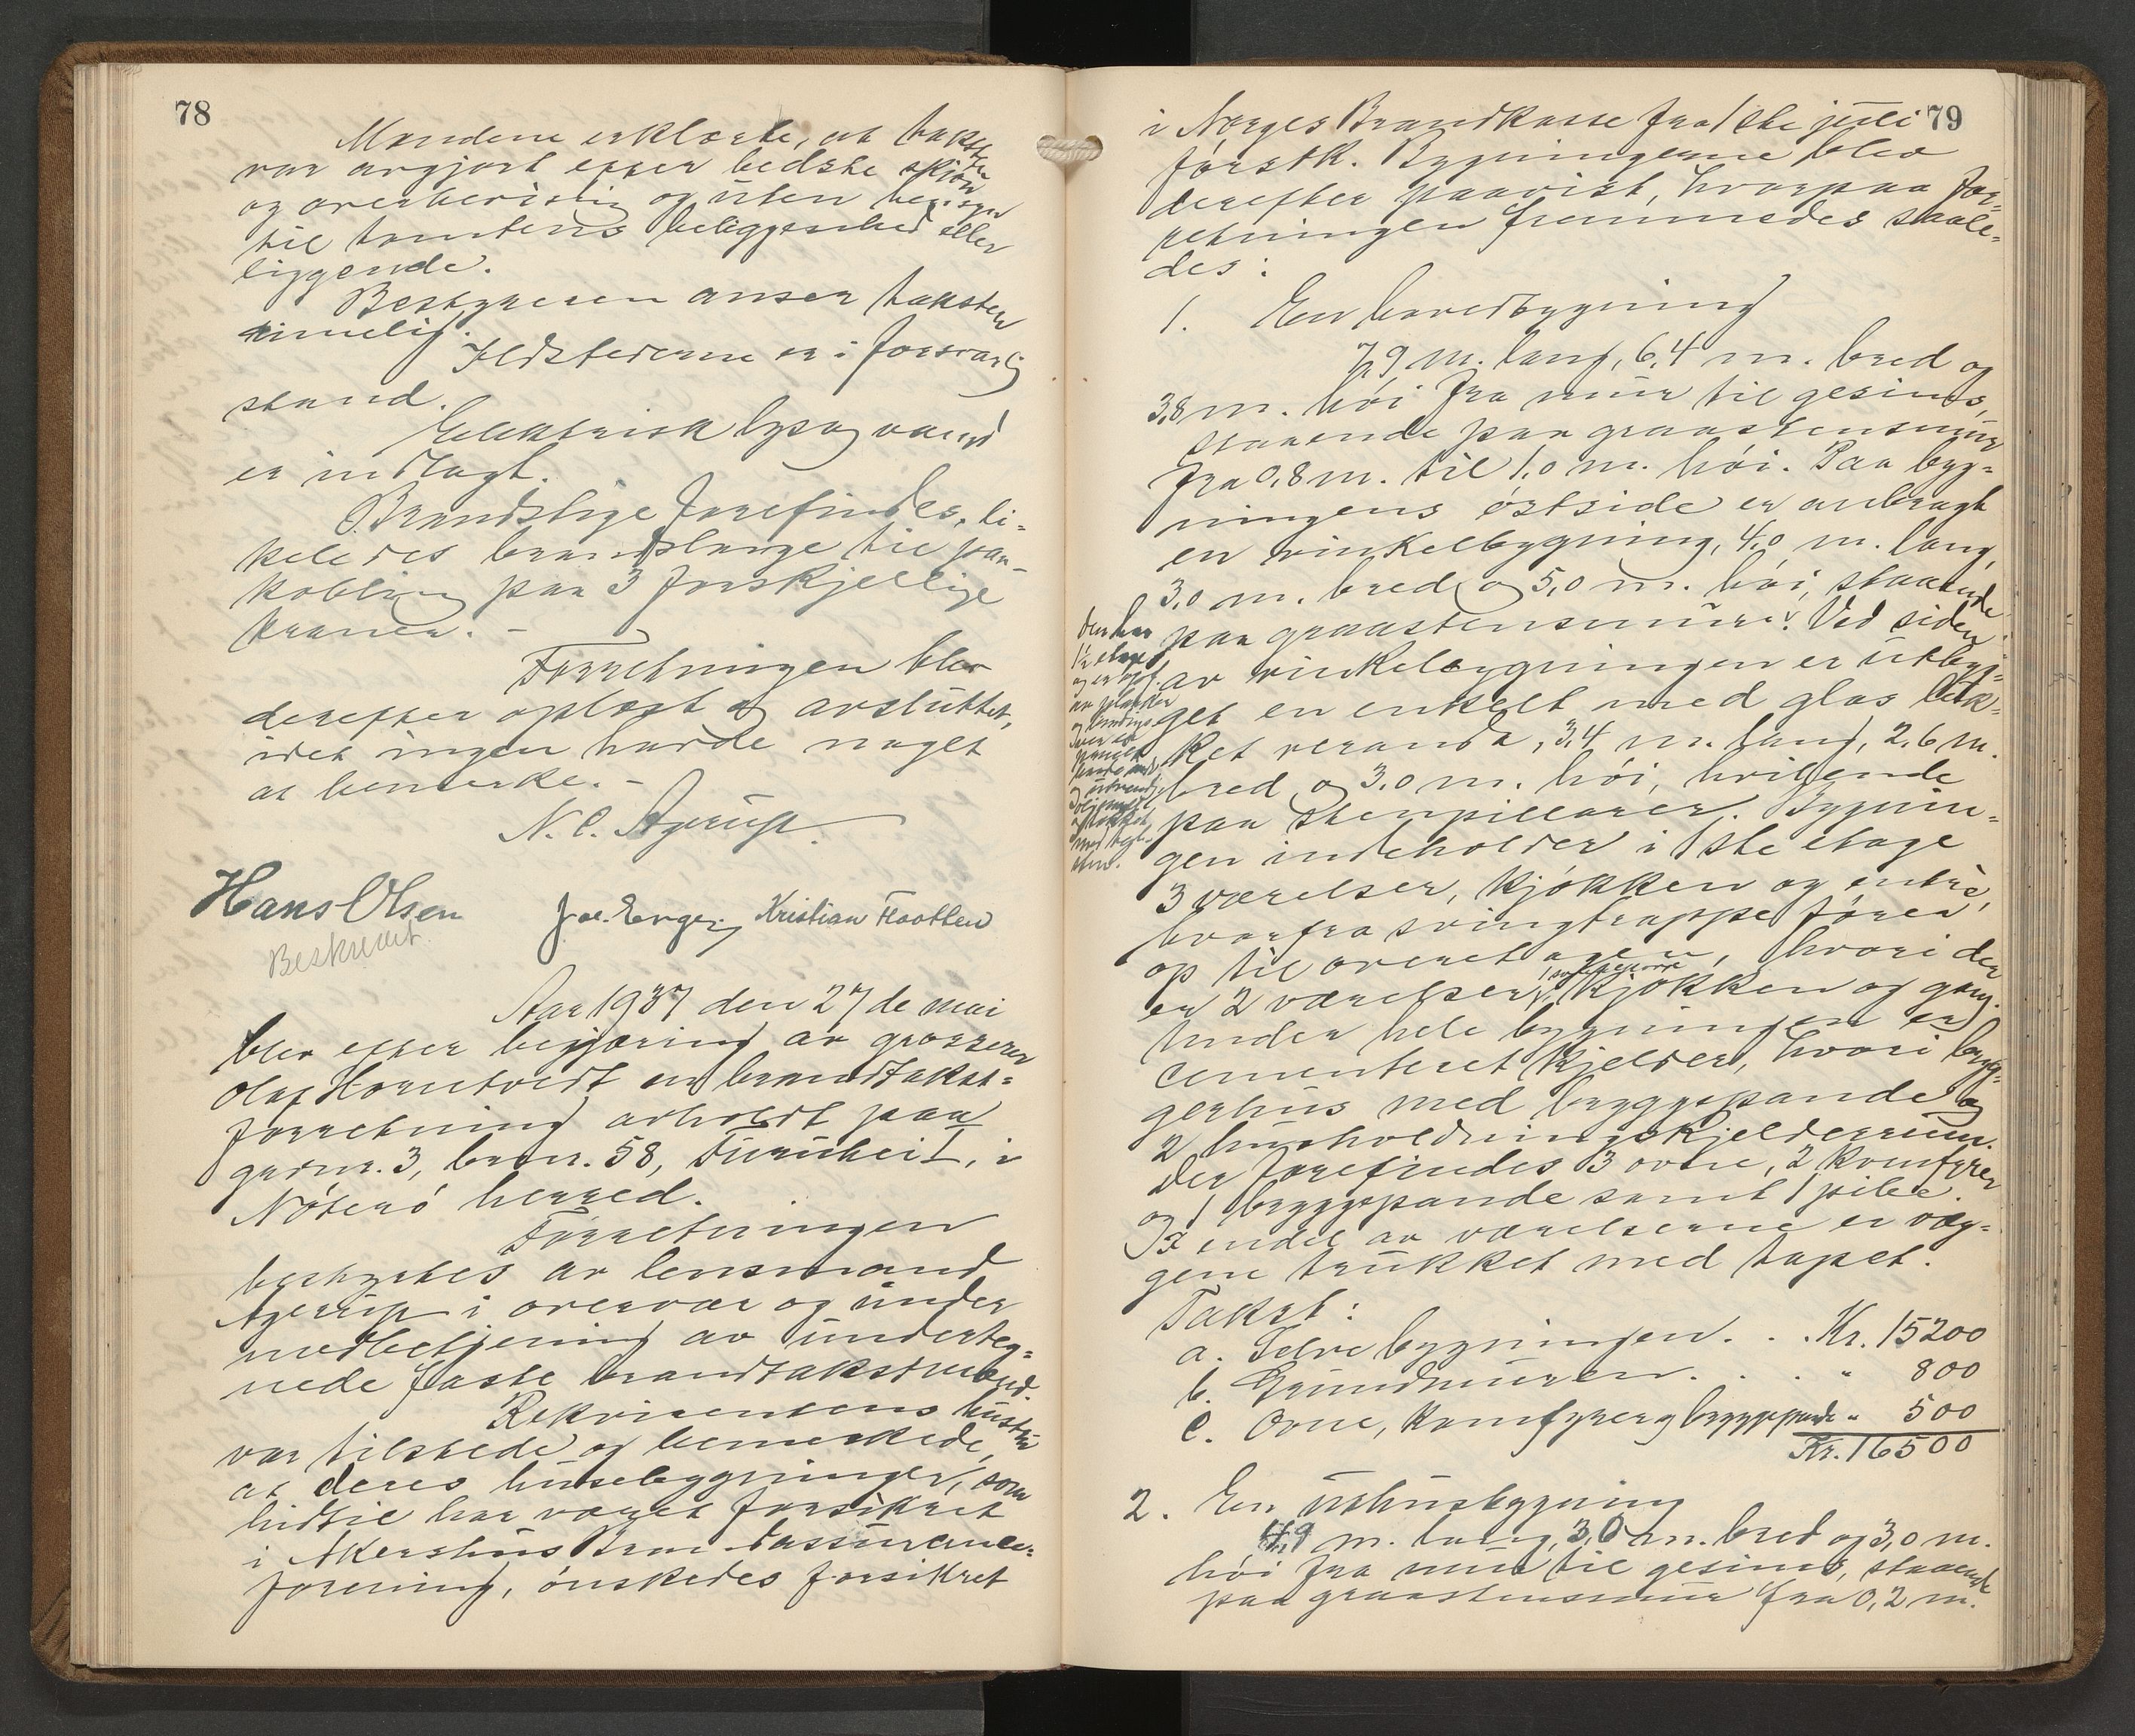 78
Mændene erklærte, at taksten
var avgjort efter bedste skjøn
og overbevisning og uten hensyn
til tomtens beliggenhed eller
liggende.
Bestyreren anser taksten
rimelig.
Ildstederne er i forsvarlig
stand.
Elektrisk lys og vand
er indlagt.
Brandstige forefindes, li-
keledes brandslange til paa-
kobling paa 3 forskjellige
kraner. -
Forretningen blev
derefter oplæst og avsluttet,
idet ingen havde noget
at bemerke. -
N. C. Agerup.
Hans Olsen Kristian Flaatten
Beskrevet.
Aar 1937 den 27de mai
blev efter begjæring av grosserer
Olaf Horntvedt en brandtakst-
forretning avholdt paa
gardnr. 3, brnr. 58, Furuheim, i
Nøterø herred.
Forretningen
bestyrtes av lensmand
Agerup i overvær og under
medbetjening av underteg-
nede faste brandtakstmænd.
Rekvirentens hustru
var tilstede og bemerkede,
at deres husebygninger, som
hidtil har været forsikret
i Akershus Brandassurance-
forening, ønskedes forsikret
79
i Norges Brandkasse fra 1ste juli
førstk. Bygningerne blev
derefter paavist, hvorpaa for-
retningen fremmedes saale-
des:
1. En hovedbygning
7,9 m. lang, 6,4 m. bred og
3,8 m. høi fra mur til gesims,
staaende paa graastensmur
fra 0,8 m. til 1,0 m. høi. Paa byg-
ningens østside er anbragt
en vinkelbygning, 4,0 m. lang,
3,0 m. bred og 5,0 m. høi, staaende
paa graastensmur. Ved siden
av vinkelbygningen er utbyg-
get en enkelt med glas luk-
ket veranda, 3,4 m. lang, 2,6 m.
bred og 3,0 m. høi, hvilende
paa stenpillarer. Bygnin-
gen indeholder i 1ste etage
3 værelser, kjøkken og entré,
hvorfra svingtrappe fører
op til overetagen, hvori der
er 2 værelser, 1 soveværelse, kjøkken og gang.
Under hele bygningen er
cementeret kjelder, hvori bryg-
gerhus med bryggepande og
2 husholdningskjelderrum.
Der forefindes 3 ovne, 2 komfyrer
og 1 bryggepande samt 1 pibe.
I endel av værelserne er væg-
gene trukket med tapet.
Den har
1½ etage
og er opf.
av planker
og bindings-
verk er
panelt
baade ind-
og utvendig
oljemalt
og tækket
med tegl-
sten.
Takst:
a. Selve bygningen. . . Kr. 15200
b. Grundmuren. . . . " 800
c. Ovne, komfyrer og bryggepande " 500
Kr. 16500
2. En uthusbygning
4,9 m. lang, 3,0 m. bred og 3,0 m.
høi fra mur til gesims, staaende
paa graastensmur fra 0,2 m.